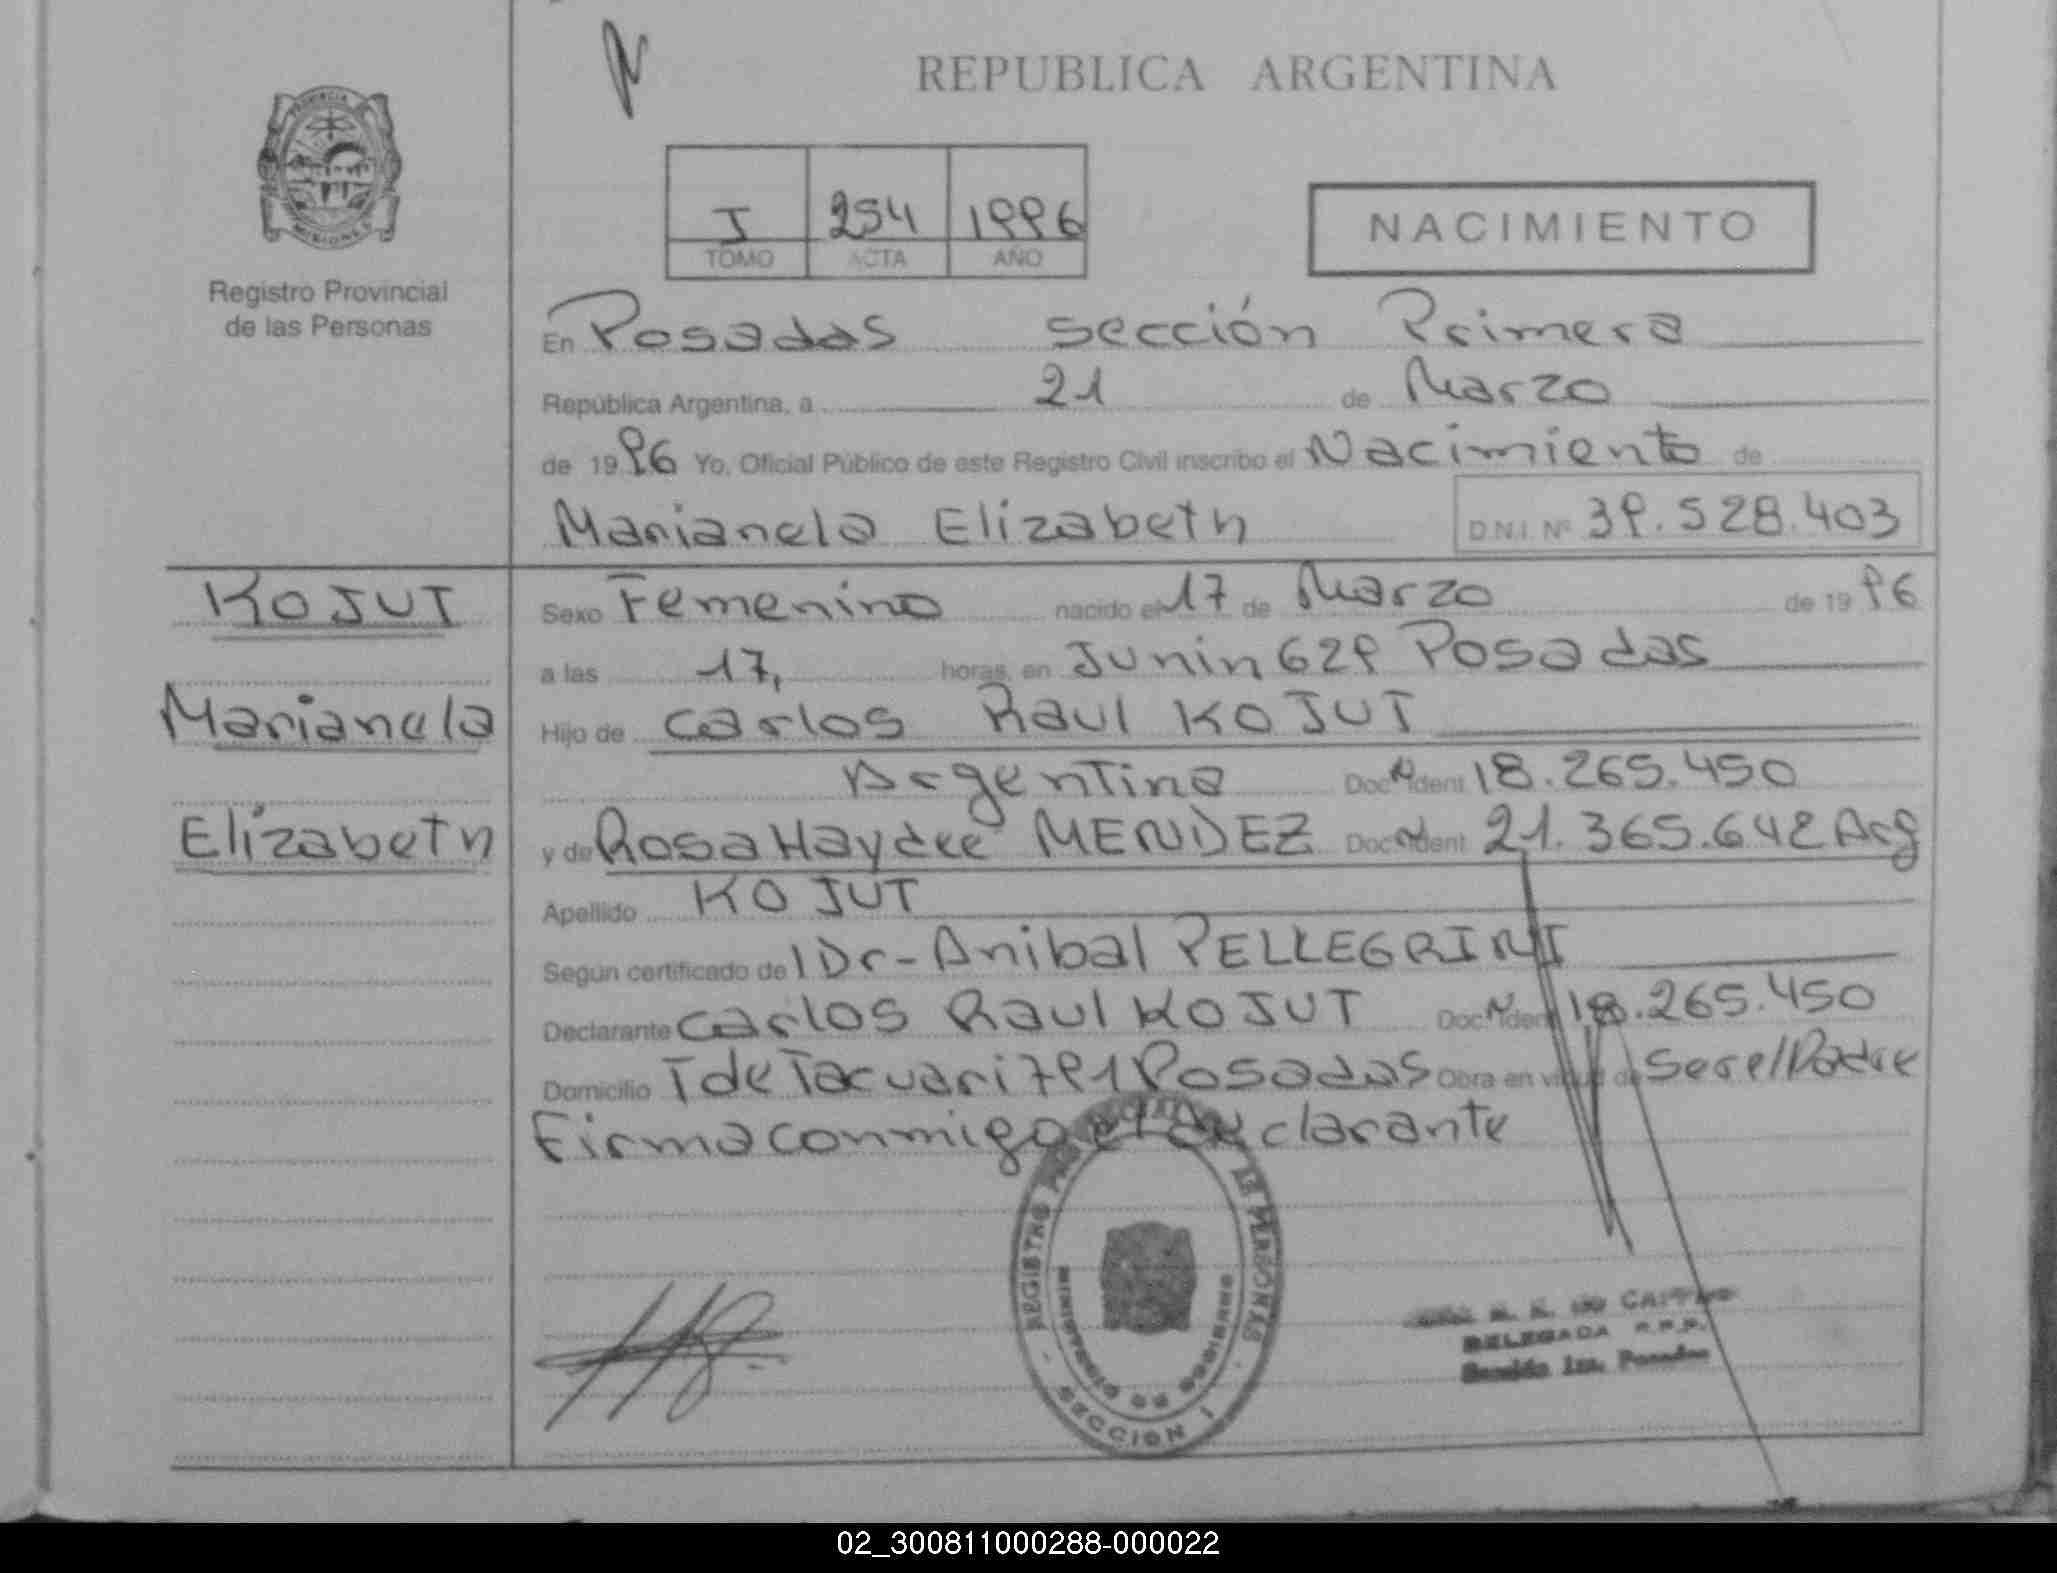 REPUBLICA ARGENTINA
PROVINCIA
MISIONES
Registro Provincial
de las Personas
I 254 1996
TOMO ACTA AÑO
NACIMIENTO
En Posadas sección Primera
República Argentina, a 21 de Marzo
de 1996 Yo, Oficial Público de este Registro Civil inscribo el Nacimiento de
Marianela Elizabeth D.N.I. Nº 39.528.403
KOJUT
Marianela
Elizabeth
Sexo Femenino nacido el 17 de Marzo de 1996
a las 17, horas, en Junin 629 Posadas
Hijo de Carlos Raul KOJUT
Argentina Doc. Ident 18.265.450
y de Rosa Haydee MENDEZ Doc. Ident 21.365.642 Arg
Apellido KOJUT
Según certificado del Dr- Anibal PELLEGRINI
Declarante Carlos Raul KOJUT Doc. Ident 18.265.450
Domicilio T de Tacuari 791 Posadas Obra en virtud de Ser el Padre
Firma conmigo el declarante
REGISTRO DE LAS PERSONAS
MINISTERIO DE GOBIERNO
SECCION 1
DELEGADA R.P.P.
Sección 1ra. Posadas
02_300811000288-000022